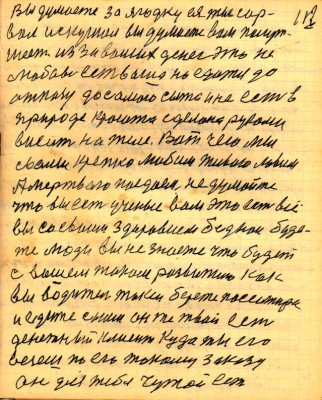 Вы думаете за ягодку ея ты сор-
вал искушал вы думаете вам
из за ваших денег это не
любовь есть ваша на едаты до
отказу до самого сыта и не есть в
природе Крошка сделана руками
висит на теле. Вот чего мы
с вами крепко любим живого ловим
А мертвого поедаем, не думайте
что вы есть ученые вам это есть всё
вы со своим здоровием бедном буде-
те люди вы не знаете что будет
с вашем таким развитию Как
вы водители такси берете пассажира
и едите с ним он же твой есть
денежный Клиент Куда ты его
везешь по его такому заказу
он для тебя Чужой есть